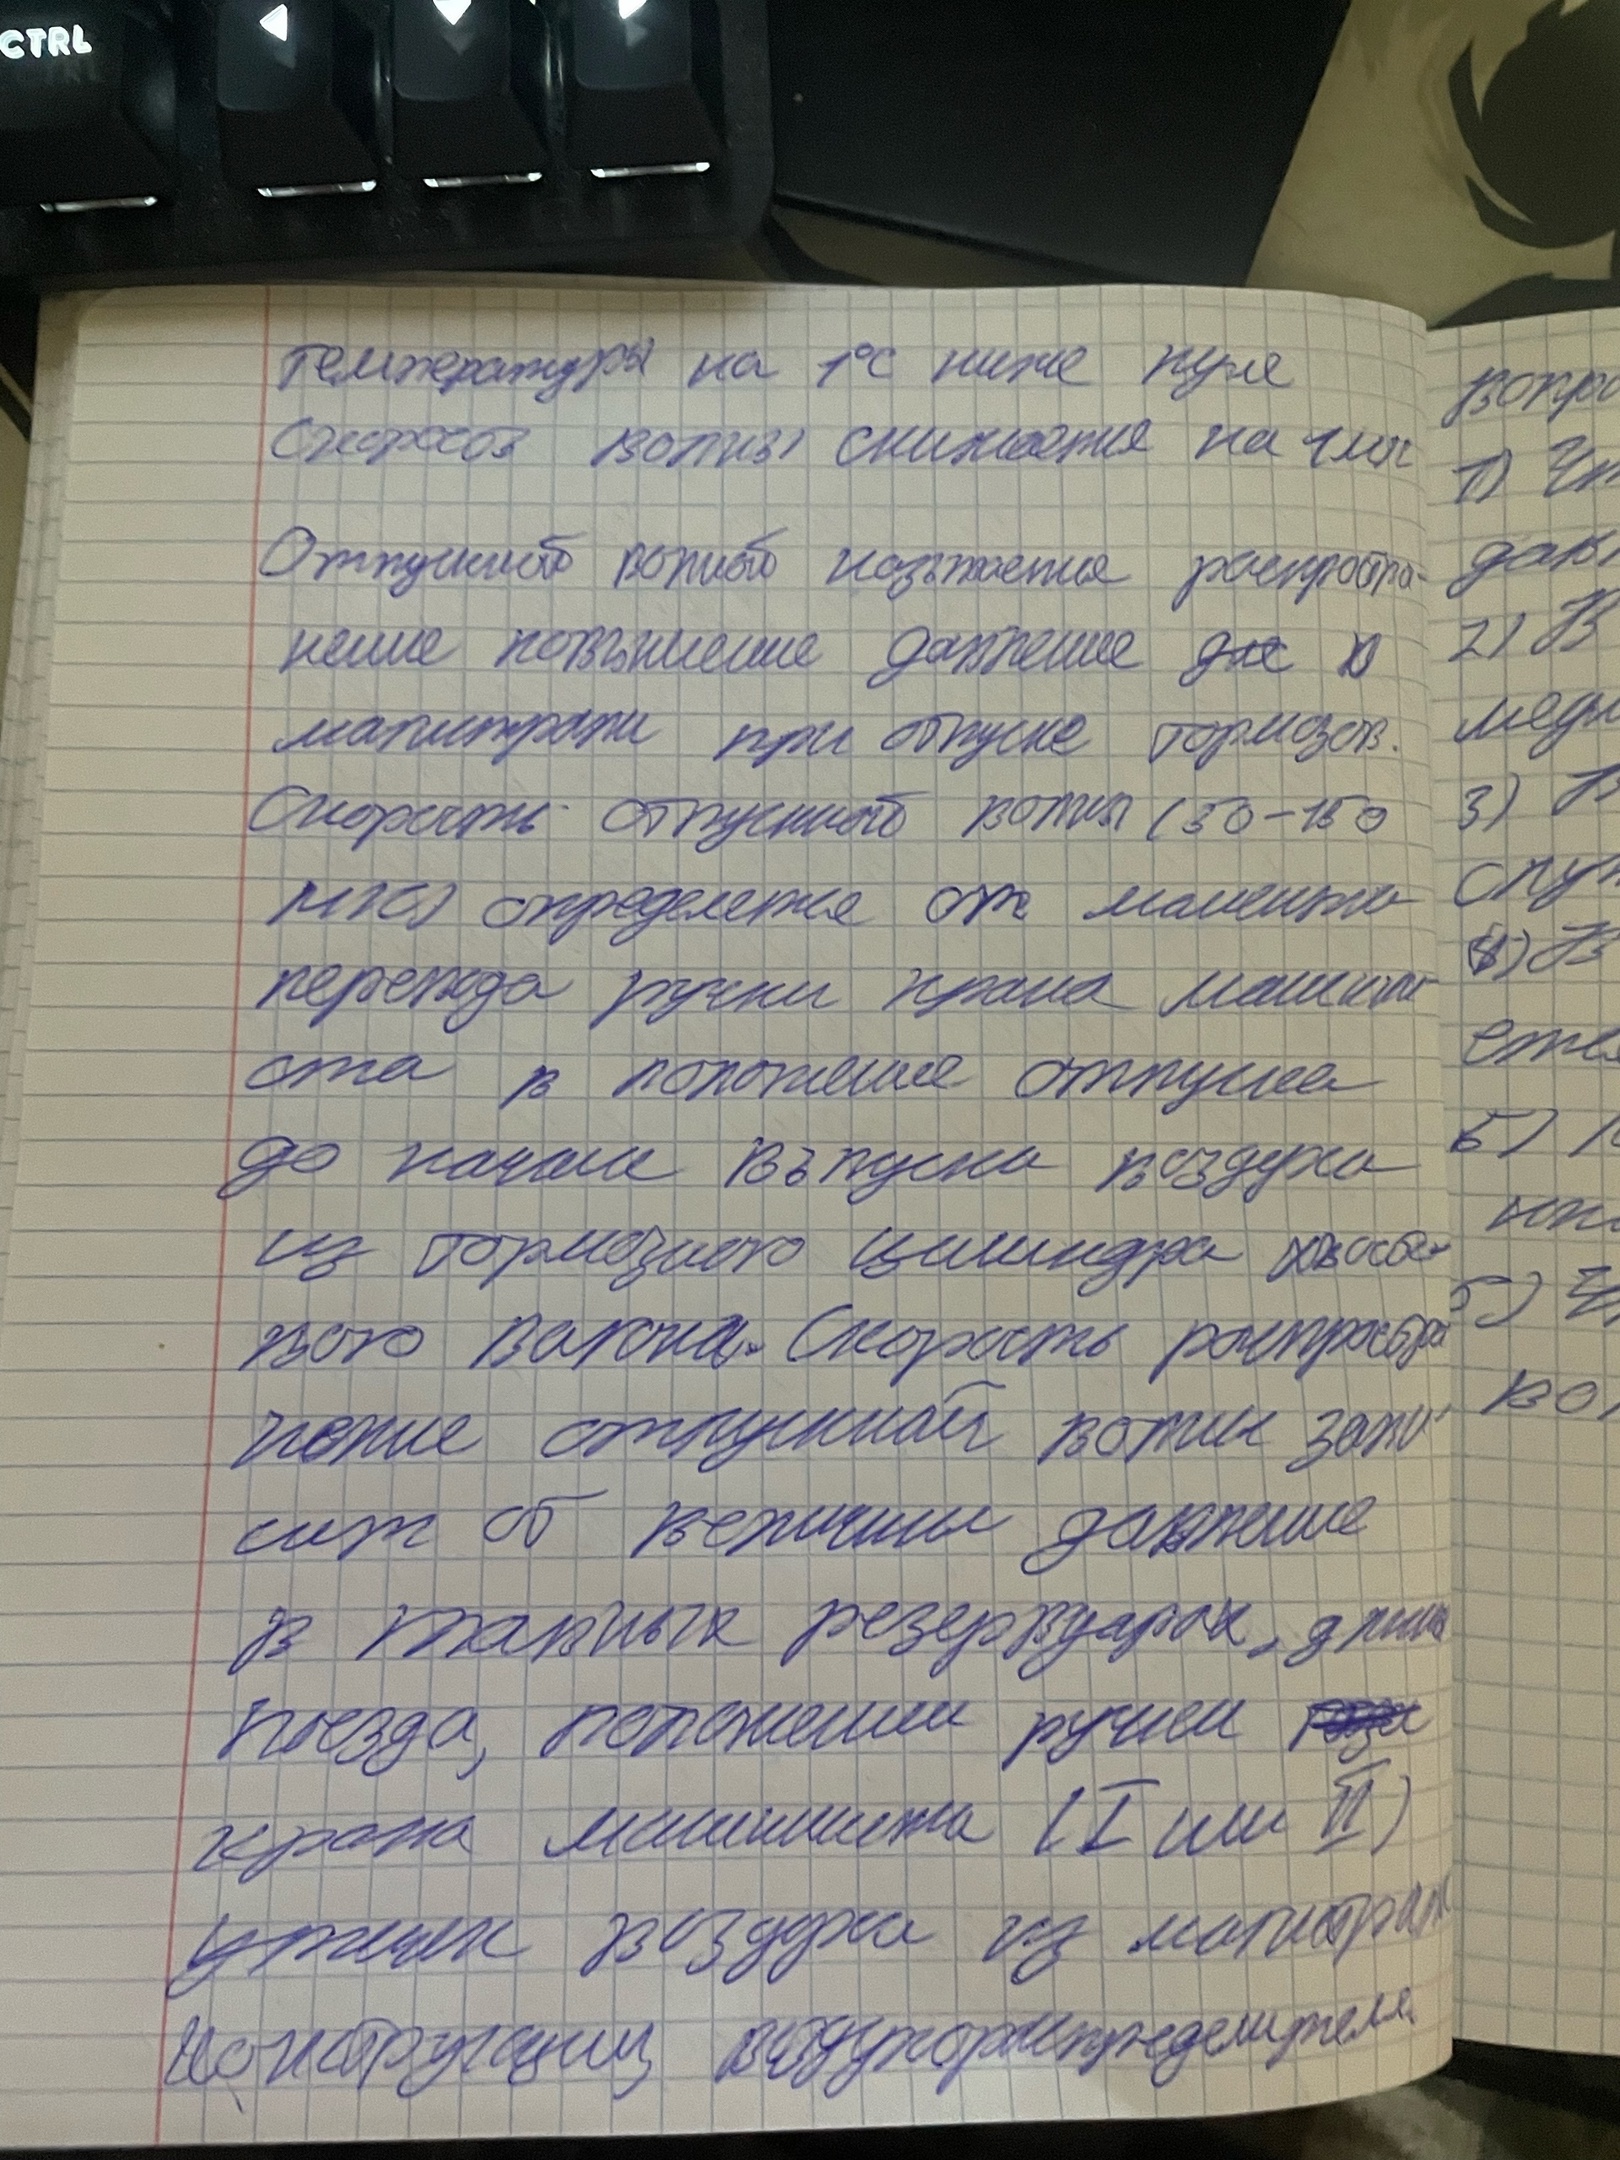 CTRL
температуры на 1°С ниже нуля
скорость волны снижается на 1 м/с
Отпускной волной называется распростра-
нение повышение давление в
магистрали при отпуске тормозов.
Скорость отпускной волны (50-150
м/с) определется от момента
перевода ручки крана машини-
ста в положение отпуска
до начала выпуска воздуха
из тормозного цилиндра хвосто-
вого вагона. Скорость распростра
нение отпускной волны зави
сит от величины давление
в главных резервуарах, длины
поезда, положении ручки
крана машиниста (I или II)
утечек воздуха из магистрали
Конструкции воздухораспределителя
1)
2) В
3) В
4) В
5)